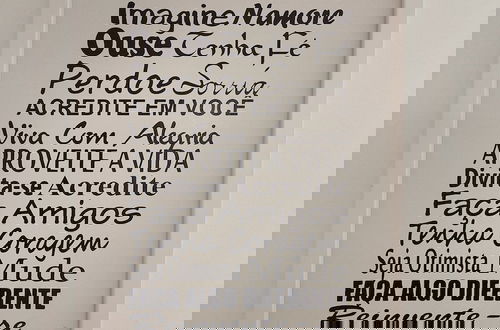 Imagine Namore
Ouse Tenha Fé
Perdoe Sorria
ACREDITE EM VOCÊ
Viva Com Alegria
APROVEITE A VIDA
Divirta-se Acredite
Faça Amigos
Tenha Coragem
Seja Otimista Mude
FAÇA ALGO DIFERENTE
Reinvente-se